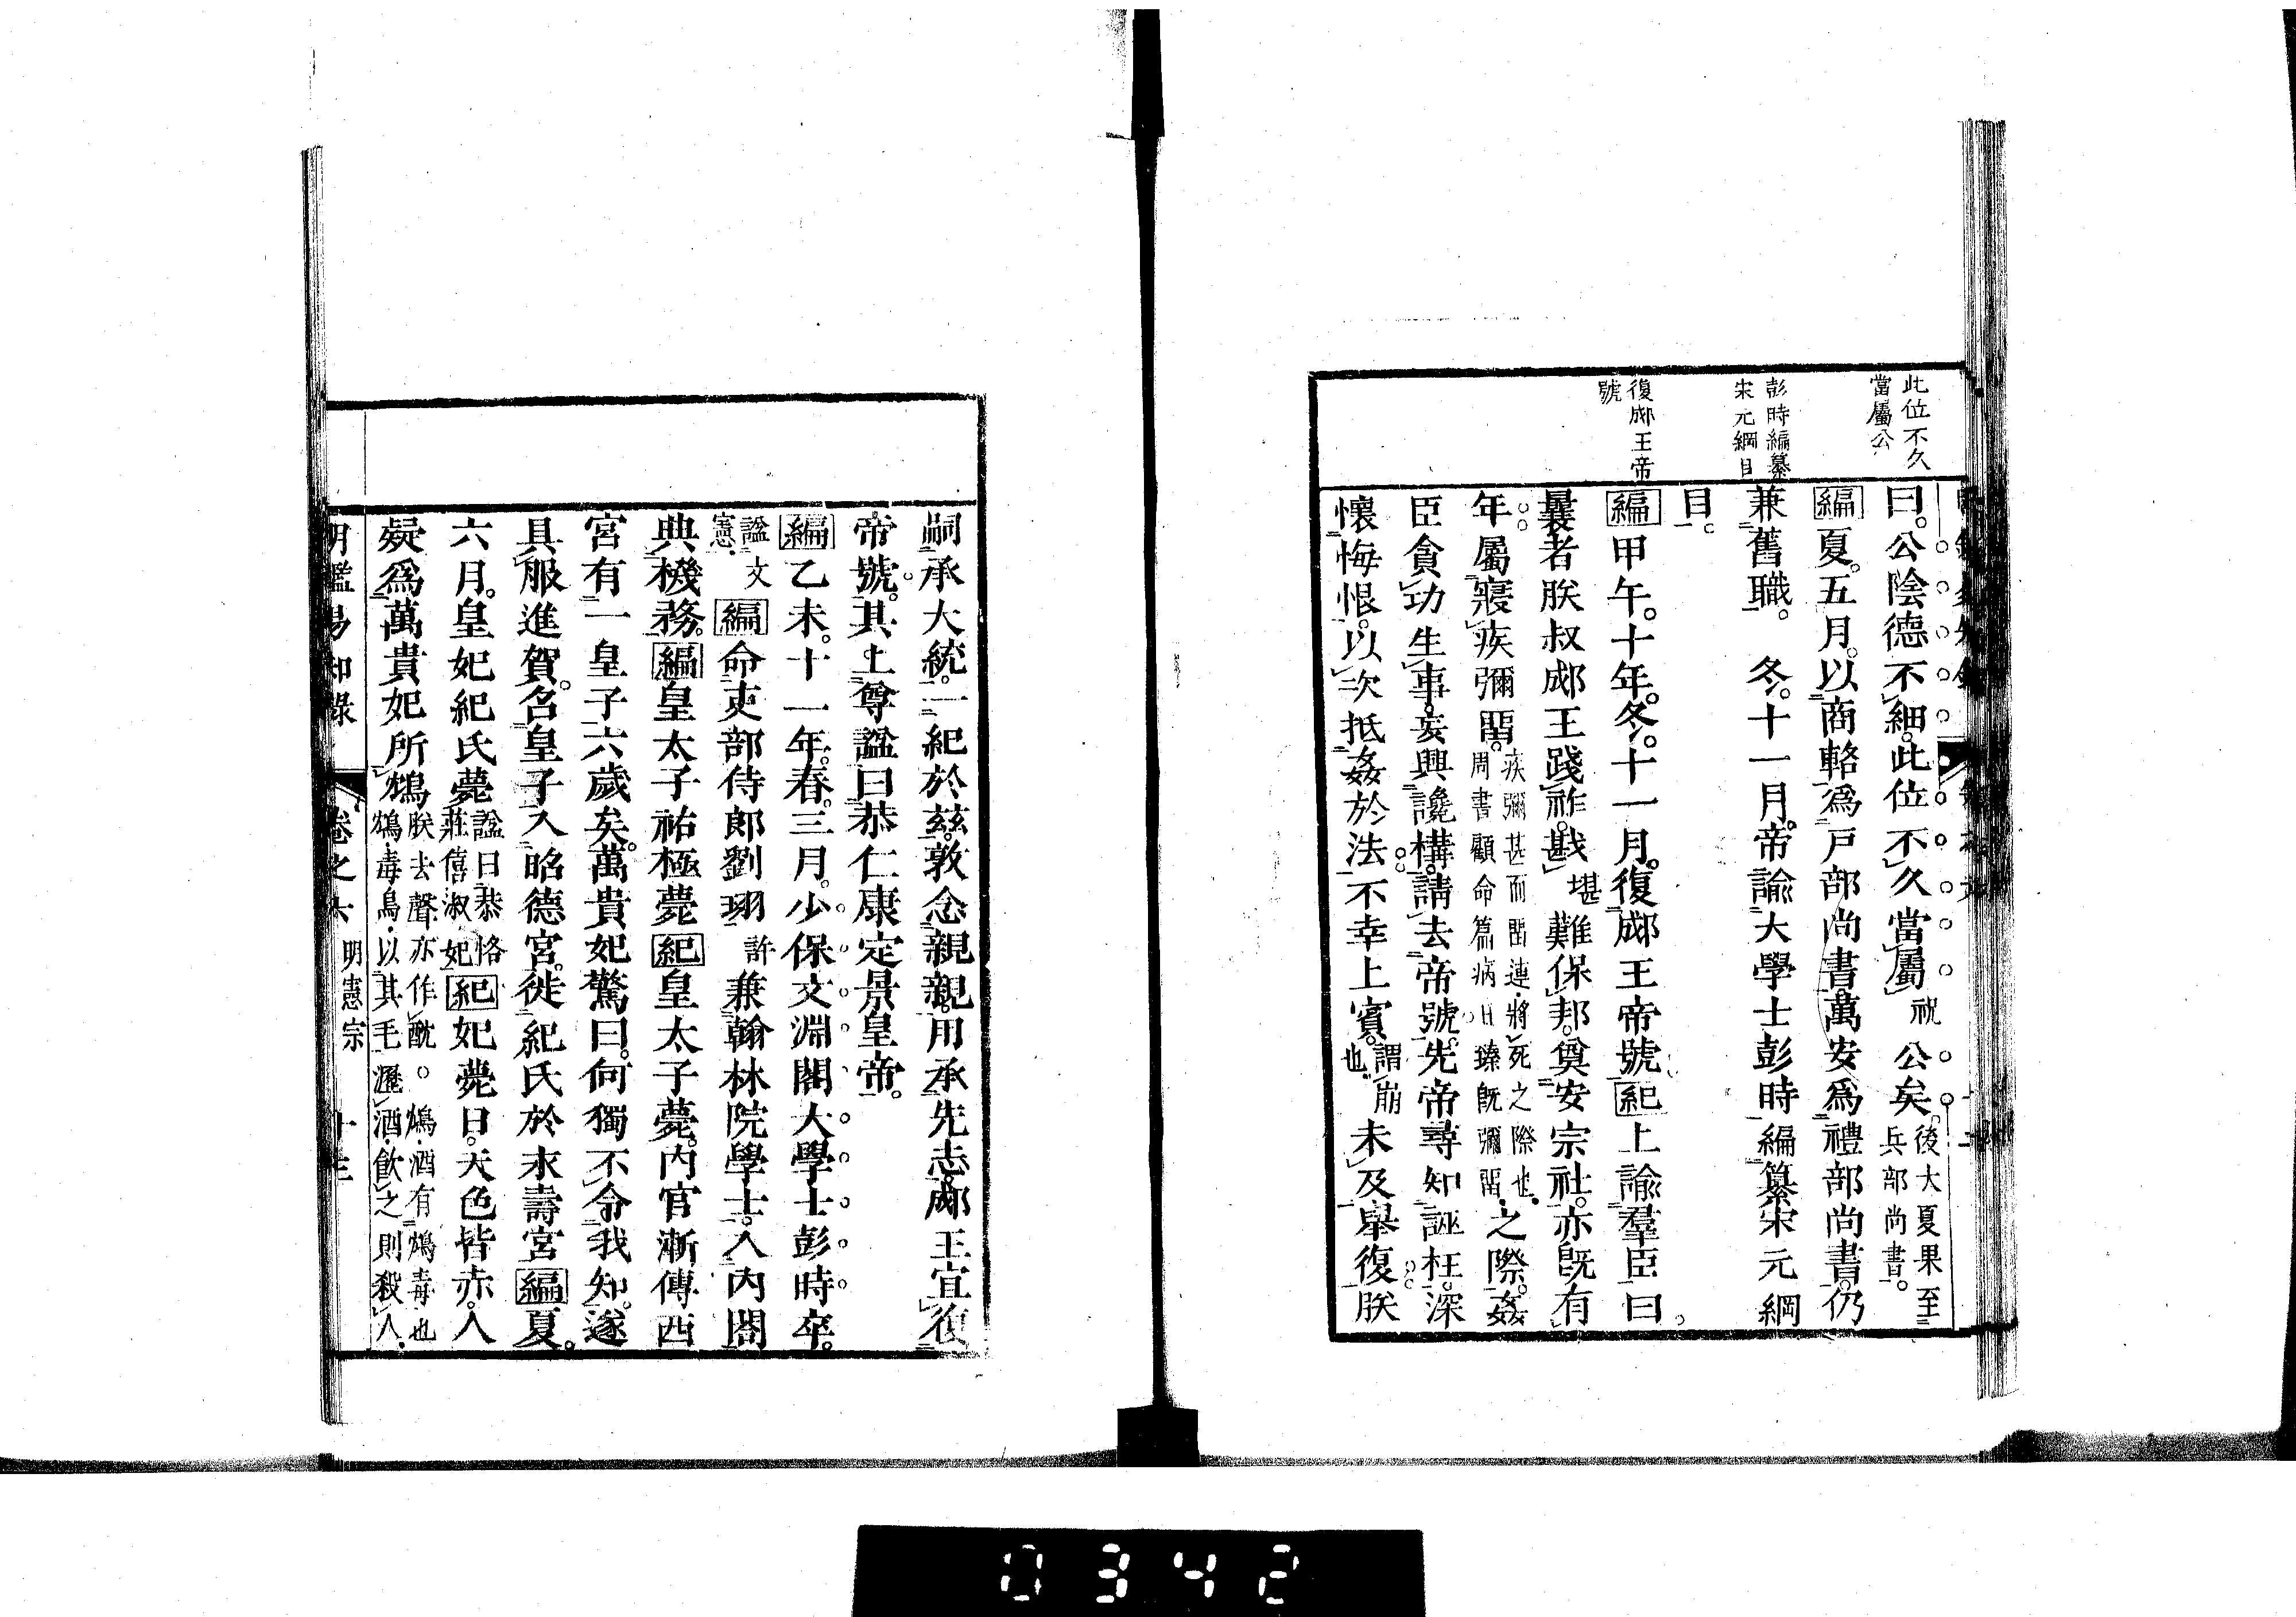 此位不久
當屬公
彭時編纂
宋元綱目
復郕王帝
號
曰。公陰德不細。此位不久當屬祝公矣。後大夏果至兵部尚書。
編夏。五月。以商輅爲戸部尚書。萬安爲禮部尚書。仍
兼舊職。　冬。十一月。帝諭大學士彭時編纂宋元綱
目。
編甲午。十年。冬。十一月。復郕王帝號。紀上諭羣臣曰。
曩者朕叔郕王踐祚。戡堪難保邦。奠安宗社。亦既有
年。屬寢疾彌留。疾彌甚而留連。將死之際也。周書顧命篇病日臻既彌留。之際。姦
臣貪功生事。妄興讒構。請去帝號。先帝尋知誣枉。深
懷悔恨。以次抵姦於法。不幸上賓。謂崩也。未及舉復。朕
嗣承大統。一紀於茲。敦念親親。用承先志。郕王宜復
帝號。其上尊諡曰恭仁康定景皇帝。
編乙未。十一年。春。三月。少保文淵閣大學士彭時卒。
諡文憲。編命吏部侍郎劉珝許兼翰林院學士。入內閣
典機務。編皇太子祐極薨。紀皇太子薨。內官漸傳西
宮有一皇子六歲矣。萬貴妃驚曰。何獨不令我知。遂
具服進賀。召皇子入昭德宮。徙紀氏於永壽宮。編夏。
六月。皇妃紀氏薨。諡曰恭恪莊僖淑妃。紀妃薨日。天色皆赤。人
疑爲萬貴妃所鴆。朕去聲亦作酖。鴆酒有鴆毒也鴆毒鳥。以其毛瀝酒飲之則殺人。
明鑑易知錄　卷之六　明憲宗　十三
0342